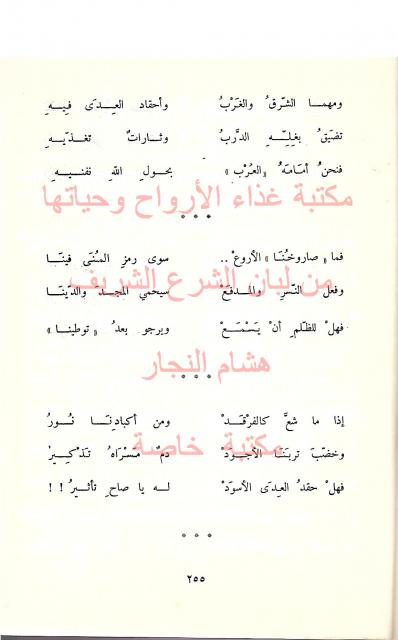 ومهما الشّرقُ والغَرْبُ وأحقاد العِدَى فِيـهِ
تضيَقُ بغلِيّهِ الدَّربُ وثاراتٌ تغذّيـهِ
فنحنُ أمَامَهُ «العُرْب» بحول اللّهِ نفنيـهِ
مكتبة غذاء الأرواح وحياتها
* * *
فما «صاروخُنـَا» الأروعْ .. سوى رمزِ المُنَى فينـَا
من لبان الشرع الشريف
وفعل النّسرِ والمدفعْ سيَحمي المجدَ والدّينَا
فهلْ للظلمِ أنْ يَسْمَعْ ويرجو بعدُ «توطينا»
هشام النجار
* * *
إذا ما شعَّ كالفرْقدْ ومن أكبادِنـَا نُورُ
وخضّبَ تربتنـَا الأجوَدْ دمٌ مَسْرَاهُ تذكِيرُ
مكتبة خاصة
فهلْ حقدُ العِدى الأسوَدْ له يا صاحِ تأثيرُ !!
* * *
٢٥٥